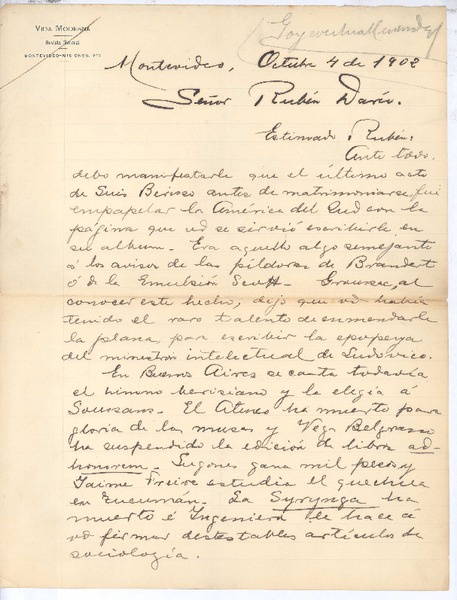 VIDA MODERNA
Revista Mensual
MONTEVIDEO
Goycoechea Menéndez
Montevideo, Octubre 4 de 1902
Señor Rubén Darío.
Estimado Rubén:
Ante todo,
debo manifestarle que el último acto
de Luis Berisso antes de matrimoniarse, fué
empapelar la América del Sud con la
página que vd se sirvió escribirle en
su album. Era aquello algo semejante
á los avisos de las píldoras de Brandert
ó de la Emulsión Scott. Groussac, al
conocer este hecho, dijo que vd había
tenido el raro talento de enmendarle
la plana, para escribir la epopeya
del ministrón intelectual de Ludovico.
En Buenos Aires se canta todavía
el himno berisiano y la elegía á
Soussens. El Ateneo ha muerto para
gloria de las musas y Vega Belgrano
ha suspendido la edición de libros ad-
honorem. Lugones gana mil pesos y
Jaime Freire estudia el quechua
en Tucumán. La Syrynga ha
muerto é Ingenieros le hace á
vd firmar detestables artículos de
sociología.